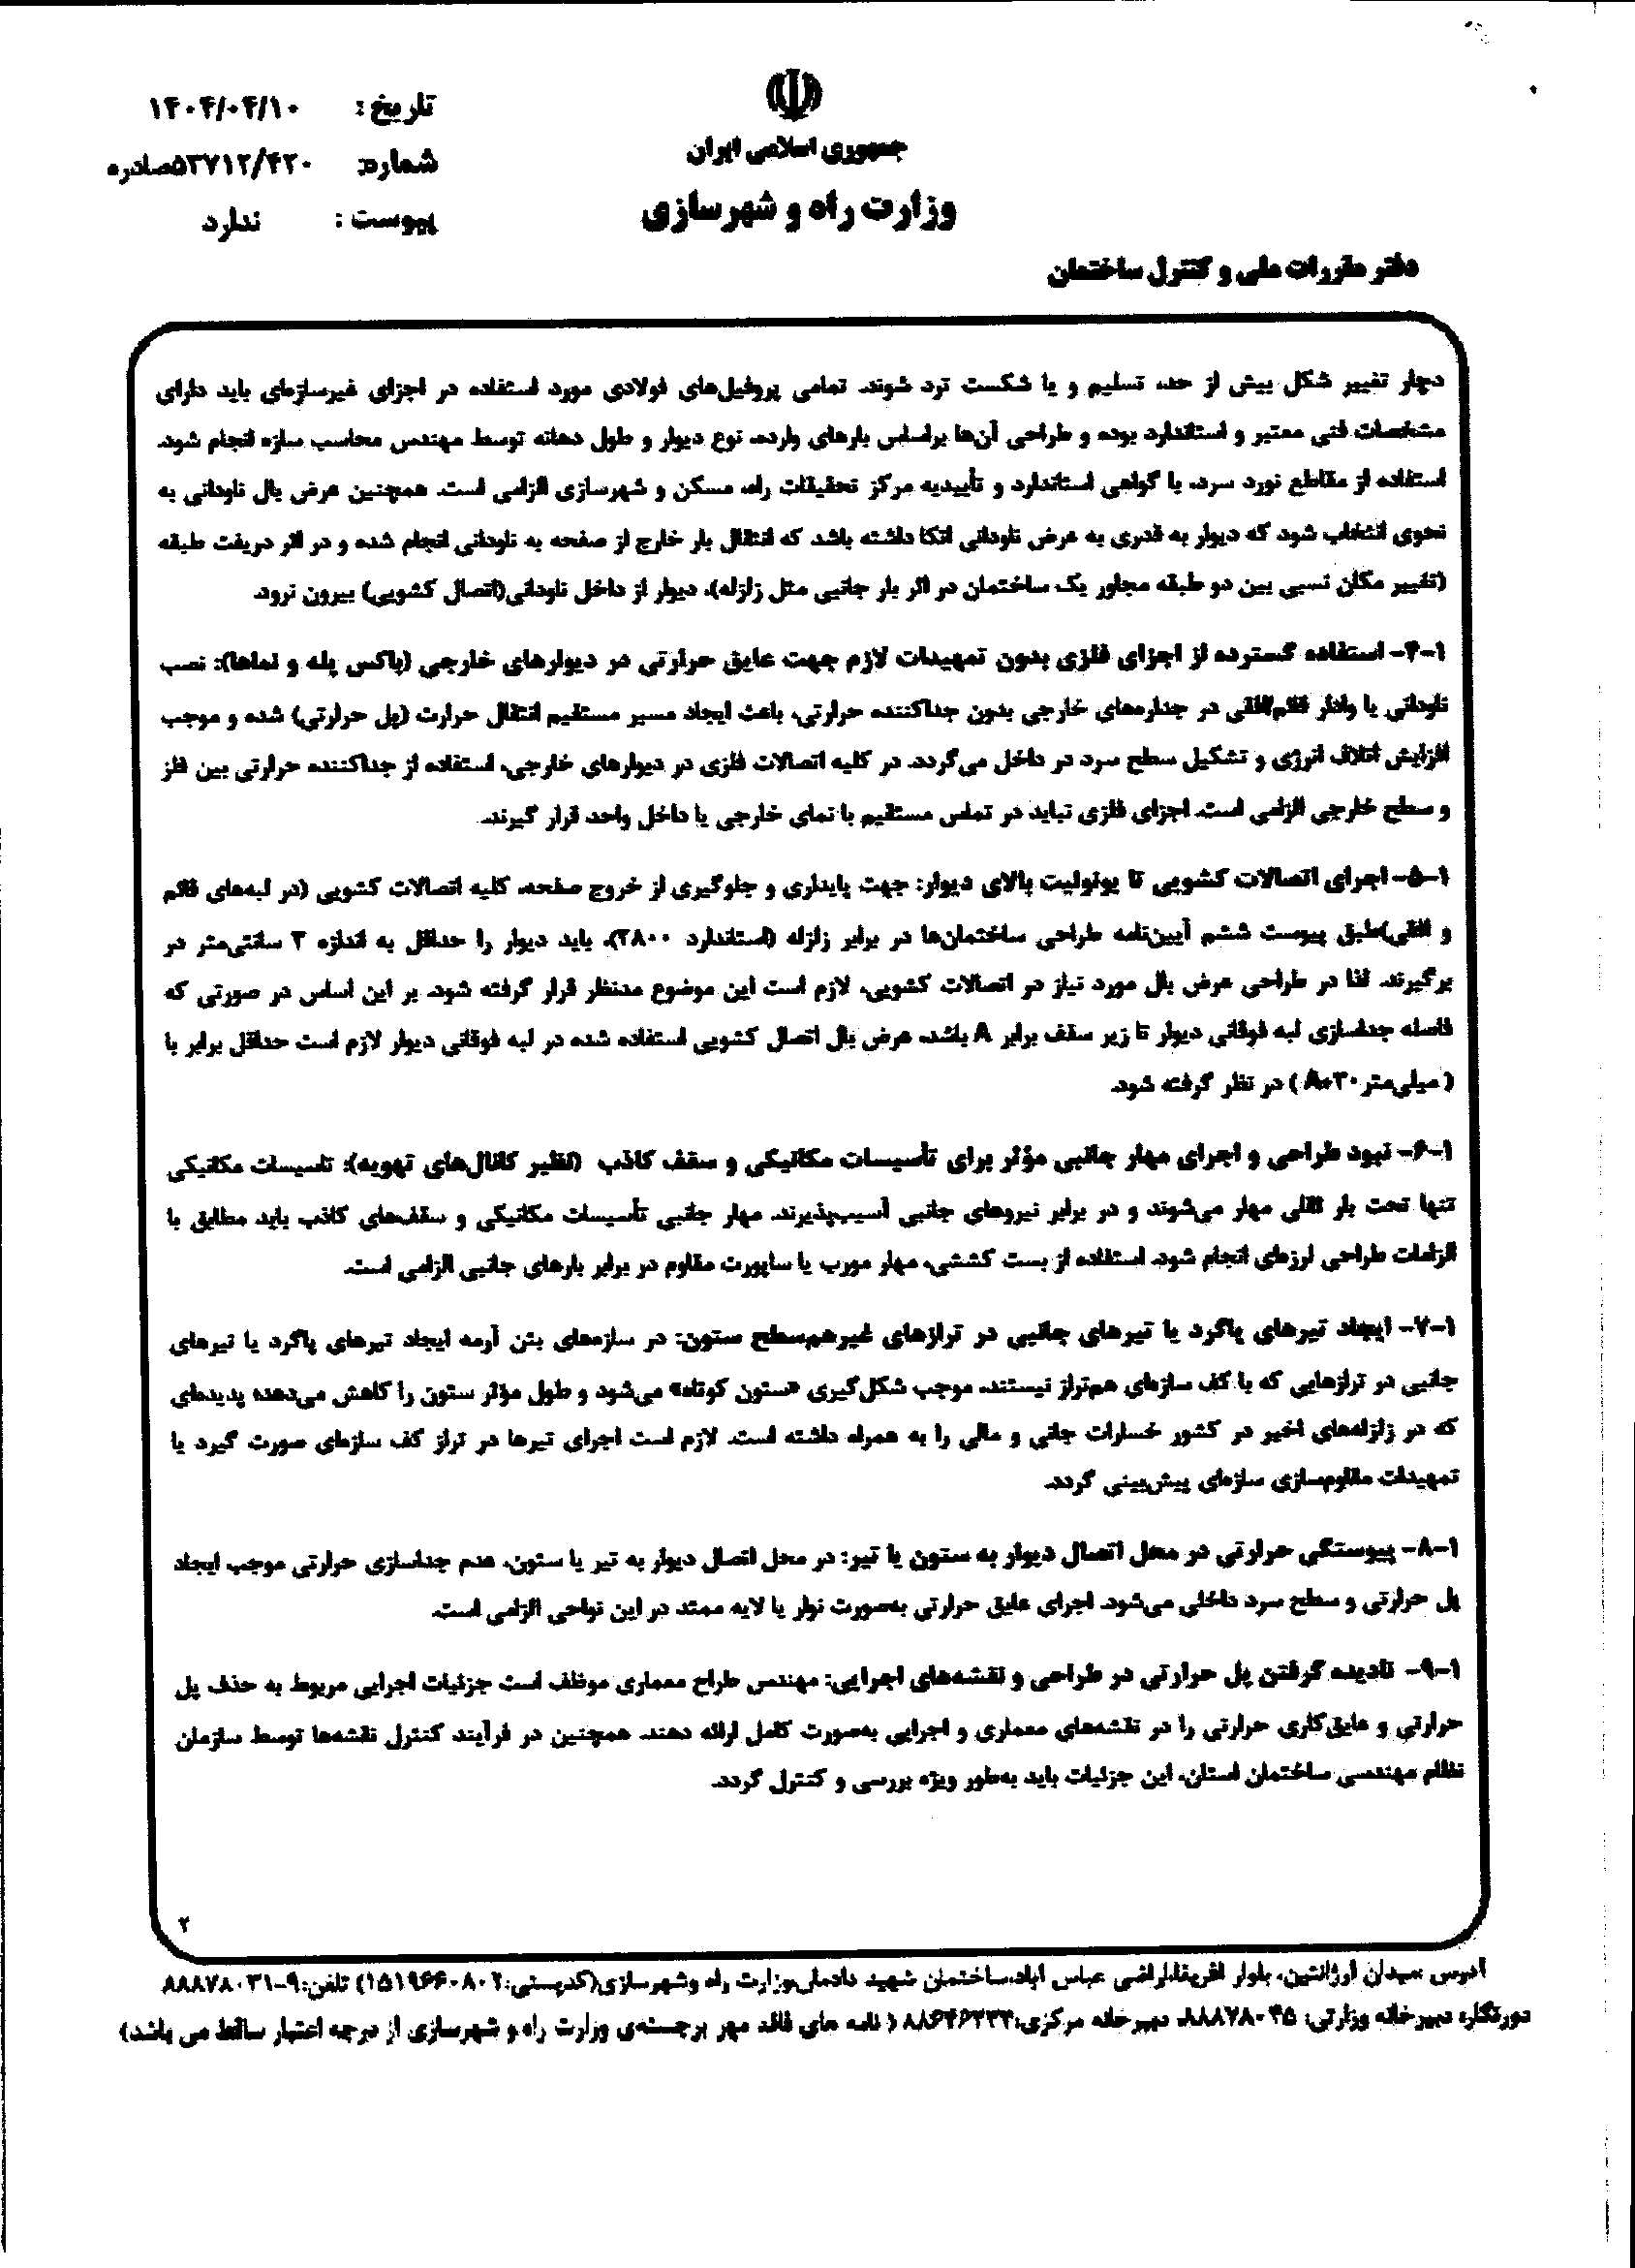 تاریخ : ۱۴۰۴/۰۴/۱۰
جمهوری اسلامی ایران
شماره: ۵۳۷۱۲/۴۲۰صادره
وزارت راه و شهرسازی
پیوست : ندارد
دفتر مقررات ملی و کنترل ساختمان
دچار تغییر شکل بیش از حد، تسلیم و یا شکست ترد شوند. تمامی پروفیل‌های فولادی مورد استفاده در اجزای غیرسازه‌ای باید دارای
مشخصات فنی معتبر و استاندارد بوده و طراحی آن‌ها براساس بارهای وارده، نوع دیوار و طول دهانه توسط مهندس محاسب سازه انجام شود.
استفاده از مقاطع نورد سرد، با گواهی استاندارد و تأییدیه مرکز تحقیقات راه، مسکن و شهرسازی الزامی است. همچنین عرض بال ناودانی به
نحوی انتخاب شود که دیوار به قدری به عرض ناودانی اتکا داشته باشد که انتقال بار خارج از صفحه به ناودانی انجام شده و در اثر دریفت طبقه
(تغییر مکان نسبی بین دو طبقه مجاور یک ساختمان در اثر بار جانبی مثل زلزله)، دیوار از داخل ناودانی(اتصال کشویی) بیرون نرود.
۱-۴- استفاده گسترده از اجزای فلزی بدون تمهیدات لازم جهت عایق حرارتی در دیوارهای خارجی (باکس پله و نماها): نصب
ناودانی یا وادار قائم/افقی در جداره‌های خارجی بدون جداکننده حرارتی، باعث ایجاد مسیر مستقیم انتقال حرارت (پل حرارتی) شده و موجب
افزایش اتلاف انرژی و تشکیل سطح سرد در داخل می‌گردد. در کلیه اتصالات فلزی در دیوارهای خارجی، استفاده از جداکننده حرارتی بین فلز
و سطح خارجی الزامی است. اجزای فلزی نباید در تماس مستقیم با نمای خارجی یا داخل واحد قرار گیرند.
۱-۵- اجرای اتصالات کشویی تا یونولیت بالای دیوار: جهت پایداری و جلوگیری از خروج صفحه، کلیه اتصالات کشویی (در لبه‌های قائم
و افقی)طبق پیوست ششم آیین‌نامه طراحی ساختمان‌ها در برابر زلزله (استاندارد ۲۸۰۰)، باید دیوار را حداقل به اندازه ۳ سانتی‌متر در
برگیرند. لذا در طراحی عرض بال مورد نیاز در اتصالات کشویی، لازم است این موضوع مدنظر قرار گرفته شود. بر این اساس در صورتی که
فاصله جداسازی لبه فوقانی دیوار تا زیر سقف برابر A باشد، عرض بال اتصال کشویی استفاده شده در لبه فوقانی دیوار لازم است حداقل برابر با
( میلی‌متر A+۳۰ ) در نظر گرفته شود.
۱-۶- نبود طراحی و اجرای مهار جانبی مؤثر برای تأسیسات مکانیکی و سقف کاذب (نظیر کانال‌های تهویه): تاسیسات مکانیکی
تنها تحت بار ثقلی مهار می‌شوند و در برابر نیروهای جانبی آسیب‌پذیرند. مهار جانبی تأسیسات مکانیکی و سقف‌های کاذب باید مطابق با
الزامات طراحی لرزه‌ای انجام شود. استفاده از بست کششی، مهار مورب یا ساپورت مقاوم در برابر بارهای جانبی الزامی است.
۱-۷- ایجاد تیرهای پاگرد یا تیرهای جانبی در ترازهای غیرهم‌سطح ستون: در سازه‌های بتن آرمه ایجاد تیرهای پاگرد یا تیرهای
جانبی در ترازهایی که با کف سازه‌ای هم‌تراز نیستند، موجب شکل‌گیری «ستون کوتاه» می‌شود و طول مؤثر ستون را کاهش می‌دهد؛ پدیده‌ای
که در زلزله‌های اخیر در کشور خسارات جانی و مالی را به همراه داشته است. لازم است اجرای تیرها در تراز کف سازه‌ای صورت گیرد یا
تمهیدات مقاوم‌سازی سازه‌ای پیش‌بینی گردد.
۱-۸- پیوستگی حرارتی در محل اتصال دیوار به ستون یا تیر: در محل اتصال دیوار به تیر یا ستون، عدم جداسازی حرارتی موجب ایجاد
پل حرارتی و سطح سرد داخلی می‌شود. اجرای عایق حرارتی به‌صورت نوار یا لایه ممتد در این نواحی الزامی است.
۱-۹- نادیده گرفتن پل حرارتی در طراحی و نقشه‌های اجرایی: مهندس طراح معماری موظف است جزئیات اجرایی مربوط به حذف پل
حرارتی و عایق‌کاری حرارتی را در نقشه‌های معماری و اجرایی به‌صورت کامل ارائه دهند. همچنین در فرآیند کنترل نقشه‌ها توسط سازمان
نظام مهندسی ساختمان استان، این جزئیات باید به‌طور ویژه بررسی و کنترل گردد.
۲
آدرس :میدان آرژانتین، بلوار افریقا،اراضی عباس آباد،ساختمان شهید دادمان،وزارت راه وشهرسازی(کدپستی:۱۵۱۹۶۶۰۸۰۲) تلفن:۹-۸۸۸۷۸۰۳۱
دورنگار: دبیرخانه وزارتی: ۸۸۸۷۸۰۴۵، دبیرخانه مرکزی:۸۸۶۴۶۲۳۳ ( نامه های فاقد مهر برجسته‌ی وزارت راه و شهرسازی از درجه اعتبار ساقط می باشد)